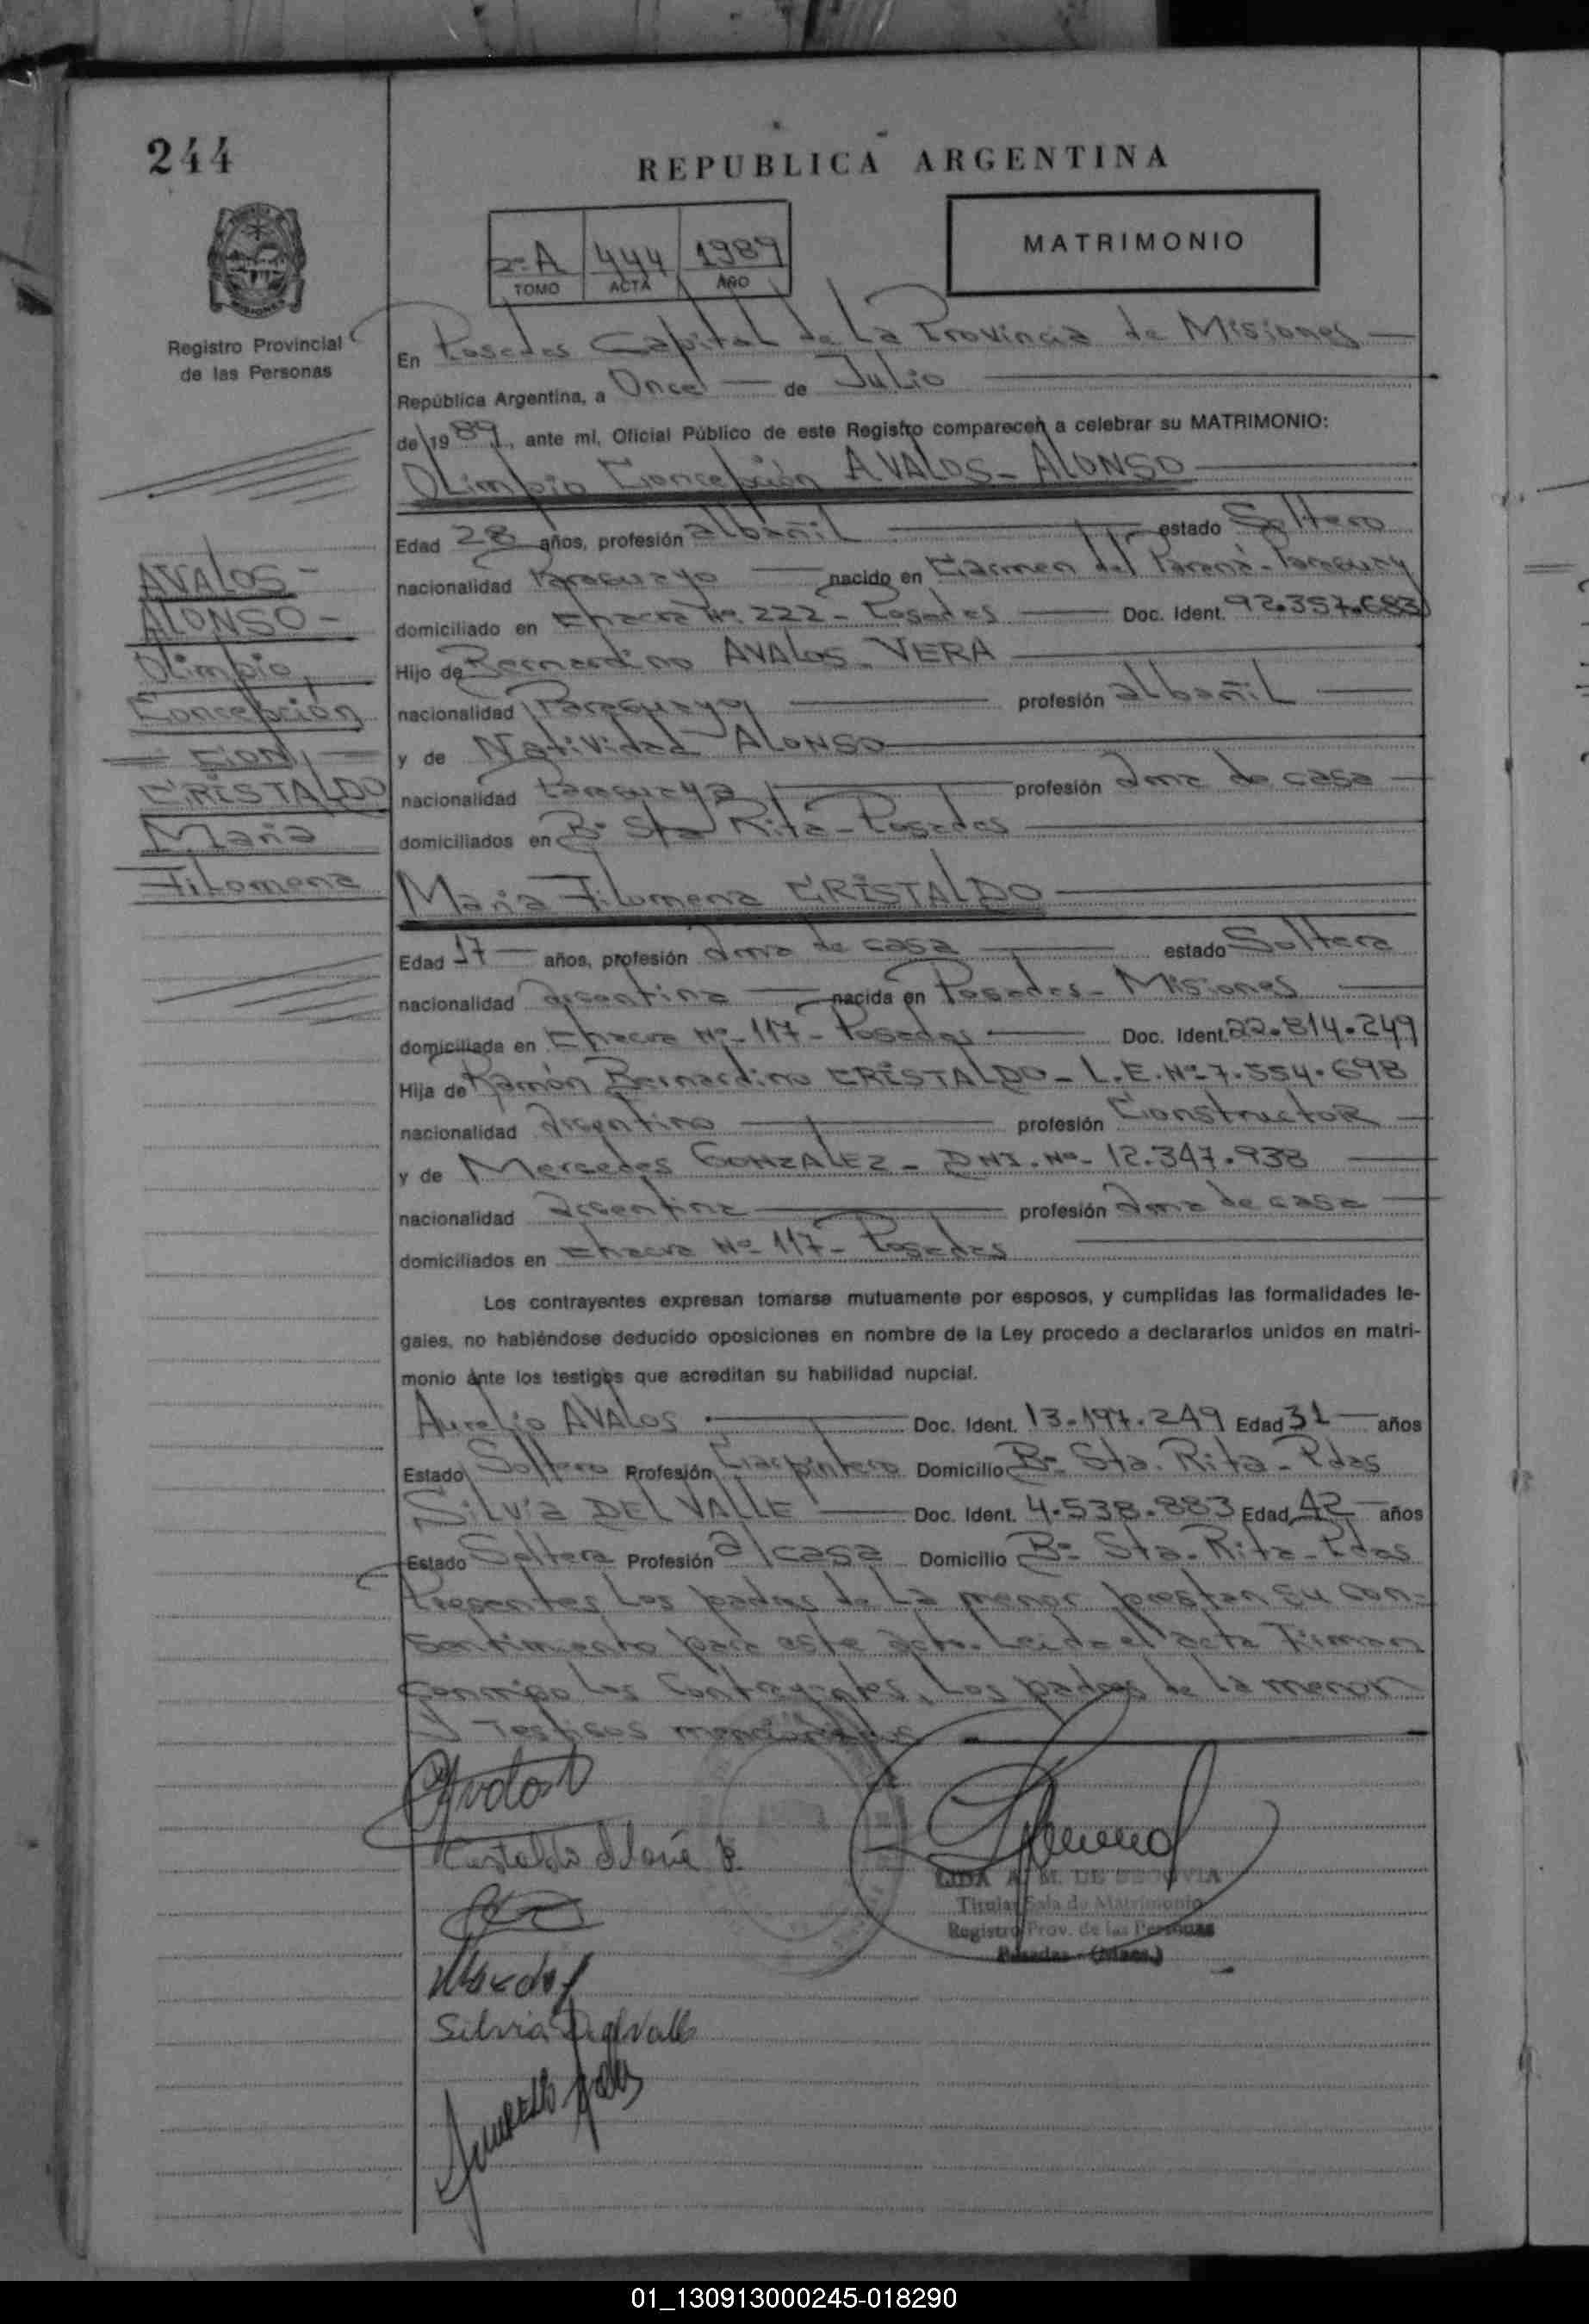 244
REPUBLICA ARGENTINA
2º A 444 1989
TOMO ACTA AÑO
MATRIMONIO
Registro Provincial
de las Personas
En Posadas Capital de La Provincia de Misiones
República Argentina, a Once de Julio
de 1989, ante mí, Oficial Público de este Registro comparecen a celebrar su MATRIMONIO:
Olimpio Concepción AVALOS - ALONSO
Edad 28 años, profesión albañil estado Soltero
nacionalidad Paraguayo nacido en Carmen del Paraná - Paraguay
domiciliado en Chacra Nº 222 - Posadas Doc. Ident. 92.357.683
Hijo de Bernardino AVALOS - VERA
nacionalidad Paraguayo profesión albañil
y de Natividad ALONSO
nacionalidad Paraguaya profesión ama de casa
domiciliados en Bº Sta Rita - Posadas
AVALOS -
ALONSO -
Olimpio
Concepción
= CON =
CRISTALDO
Maria
Filomena
Maria Filomena CRISTALDO
Edad 17 años, profesión ama de casa estado Soltera
nacionalidad argentina nacida en Posadas - Misiones
domiciliada en Chacra Nº 117 - Posadas Doc. Ident. 22.814.249
Hija de Ramón Bernardino CRISTALDO - L.E. Nº 7.554.698
nacionalidad argentino profesión Constructor
y de Mercedes GONZALEZ - DNI. Nº 12.347.938
nacionalidad argentina profesión ama de casa
domiciliados en Chacra Nº 117 - Posadas
Los contrayentes expresan tomarse mutuamente por esposos, y cumplidas las formalidades le-
gales, no habiéndose deducido oposiciones en nombre de la Ley procedo a declararlos unidos en matri-
monio ante los testigos que acreditan su habilidad nupcial.
Aurelio AVALOS Doc. Ident. 13.197.249 Edad 31 años
Estado Soltero Profesión Carpintero Domicilio Bº Sta. Rita - Pdas
Silvia DEL VALLE Doc. Ident. 4.538.883 Edad 42 años
Estado Soltera Profesión a/casa Domicilio Bº Sta. Rita - Pdas
Presentes Los padres de La menor prestan su con-
sentimiento para este acto. Leida el acta Firman
conmigo Los Contrayentes, Los padres de La menor
y Testigos mencionados
Cristaldo Maria F.
LIDA A. M. DE SEGOVIA
Titular Sala de Matrimonio
Registro Prov. de las Personas
Posadas - (Mnes.)
Silvia Del Valle
01_130913000245-018290